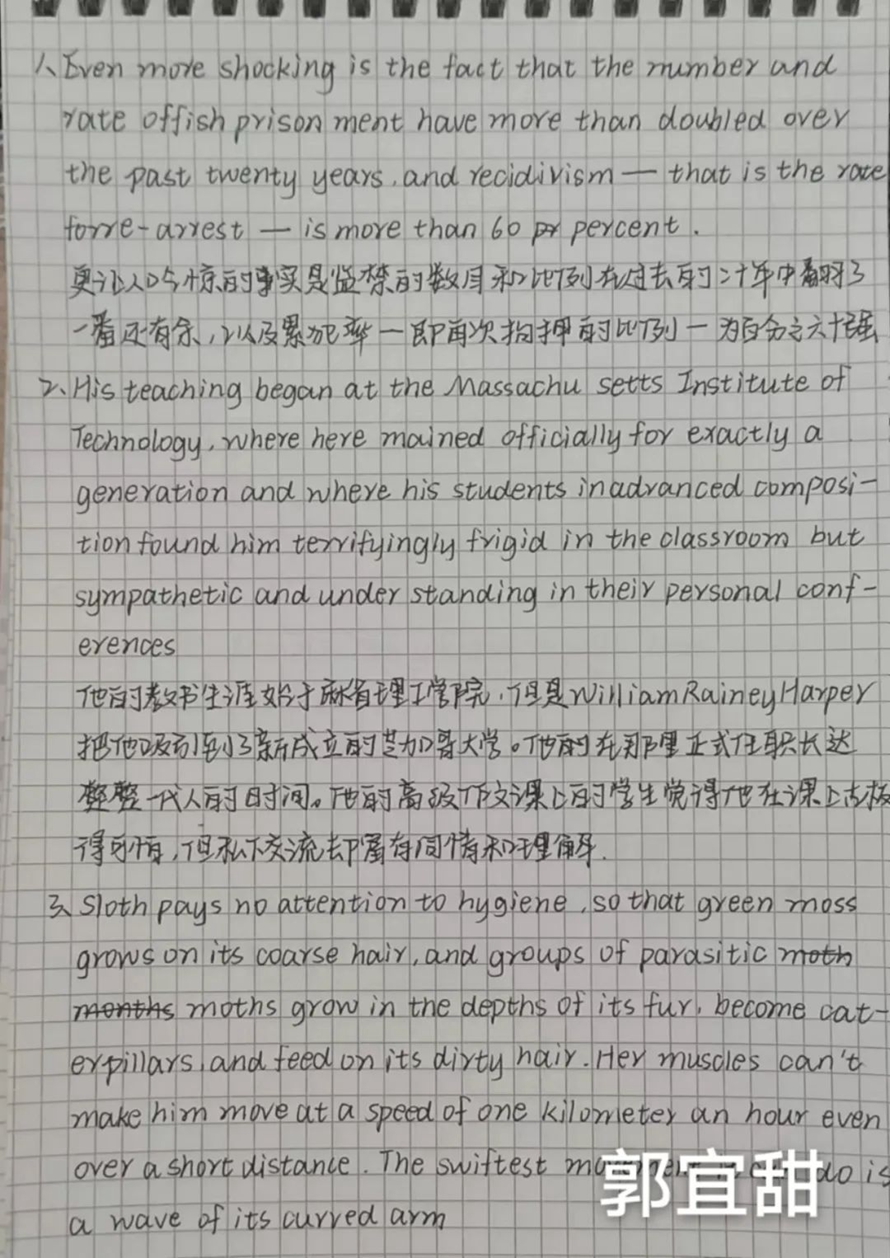 1、Even more shocking is the fact that the number and
rate offish prison ment have more than doubled over
the past twenty years, and recidivism — that is the rate
forre-arrest — is more than 60 percent.
更让人吃惊的事实是监禁的数目和比例在过去的二十年中翻了
一番还有余，以及累犯率一即再次拘押的比例一为百分之六十强
2、His teaching began at the Massachu setts Institute of
Technology, where here mained officially for exactly a
generation and where his students inadvanced composi-
tion found him terrifyingly frigid in the classroom but
sympathetic and under standing in their personal conf-
erences
他的教书生涯始于麻省理工学院，但是William Rainey Harper
把他吸引到了新成立的芝加哥大学。他的在那里正式任职长达
整整一代人的时间。他的高级作文课上的学生觉得他在课上古板
得可怕，但私下交流却富有同情和理解.
3、Sloth pays no attention to hygiene, so that green moss
grows on its coarse hair, and groups of parasitic moth
months moths grow in the depths of its fur, become cat-
erpillars, and feed on its dirty hair. Her muscles can't
make him move at a speed of one kilometer an hour even
over a short distance. The swiftest do is
a wave of its curved arm
郭宜甜